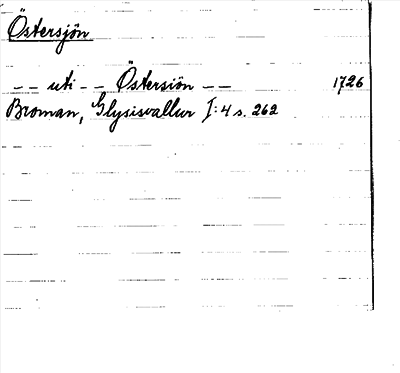 Östersjön
-- uti -- Östersiön -- 1726
Broman, Glysisvallur I:4 s. 262